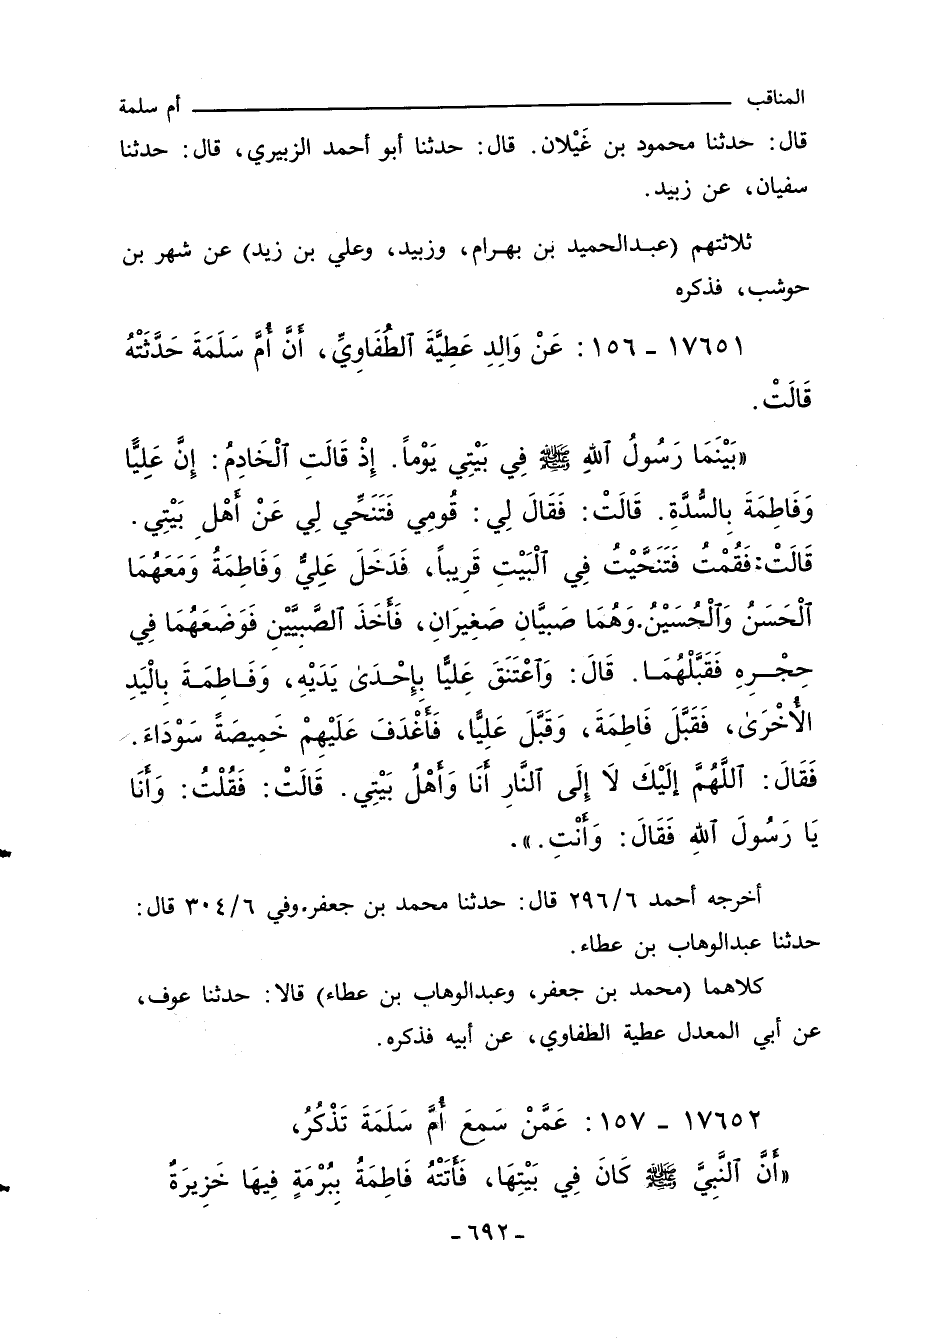 المناقب ــــــــــــ أم سلمة
قال: حدثنا محمود بن غَيْلان. قال: حدثنا أبو أحمد الزبيري، قال: حدثنا
سفيان، عن زبيد.
ثلاثتهم (عبدالحميد بن بهرام، وزبيد، وعلي بن زيد) عن شهر بن
حوشب، فذكره
١٧٦٥١ - ١٥٦: عَنْ وَالِدِ عَطِيَّةَ ٱلطُّفَاوِيِّ، أَنَّ أُمَّ سَلَمَةَ حَدَّثَتْهُ
قَالَتْ.
«بَيْنَمَا رَسُولُ ٱللهِ ﷺ فِي بَيْتِي يَوْماً. إِذْ قَالَتِ ٱلْخَادِمُ: إِنَّ عَلِيًّا
وَفَاطِمَةَ بِالسُّدَّةِ. قَالَتْ: فَقَالَ لِي: قُومِي فَتَنَحِّي لِي عَنْ أَهْلِ بَيْتِي.
قَالَتْ: فَقُمْتُ فَتَنَحَّيْتُ فِي ٱلْبَيْتِ قَرِيباً، فَدَخَلَ عَلِيٌّ وَفَاطِمَةُ وَمَعَهُمَا
ٱلْحَسَنُ وَٱلْحُسَيْنُ. وَهُمَا صَبِيَّانِ صَغِيرَانِ، فَأَخَذَ ٱلصَّبِيَّيْنِ فَوَضَعَهُمَا فِي
حِجْرِهِ فَقَبَّلَهُمَا. قَالَ: وَٱعْتَنَقَ عَلِيًّا بِإِحْدَىٰ يَدَيْهِ، وَفَاطِمَةَ بِالْيَدِ
الْأُخْرَىٰ، فَقَبَّلَ فَاطِمَةَ، وَقَبَّلَ عَلِيًّا، فَأَغْدَفَ عَلَيْهِمْ خَمِيصَةً سَوْدَاءَ.
فَقَالَ: ٱللَّهُمَّ إِلَيْكَ لَا إِلَى ٱلنَّارِ أَنَا وَأَهْلُ بَيْتِي. قَالَتْ: فَقُلْتُ: وَأَنَا
يَا رَسُولَ ٱللهِ فَقَالَ: وَأَنْتِ.».
أخرجه أحمد ٢٩٦/٦ قال: حدثنا محمد بن جعفر. وفي ٣٠٤/٦ قال:
حدثنا عبدالوهاب بن عطاء.
كلاهما (محمد بن جعفر، وعبدالوهاب بن عطاء) قالا: حدثنا عوف،
عن أبي المعدل عطية الطفاوي، عن أبيه فذكره.
١٧٦٥٢ - ١٥٧: عَمَّنْ سَمِعَ أُمَّ سَلَمَةَ تَذْكُرُ،
«أَنَّ ٱلنَّبِيَّ ﷺ كَانَ فِي بَيْتِهَا، فَأَتَتْهُ فَاطِمَةُ بِبُرْمَةٍ فِيهَا خَزِيرَةٌ
- ٦٩٢ -